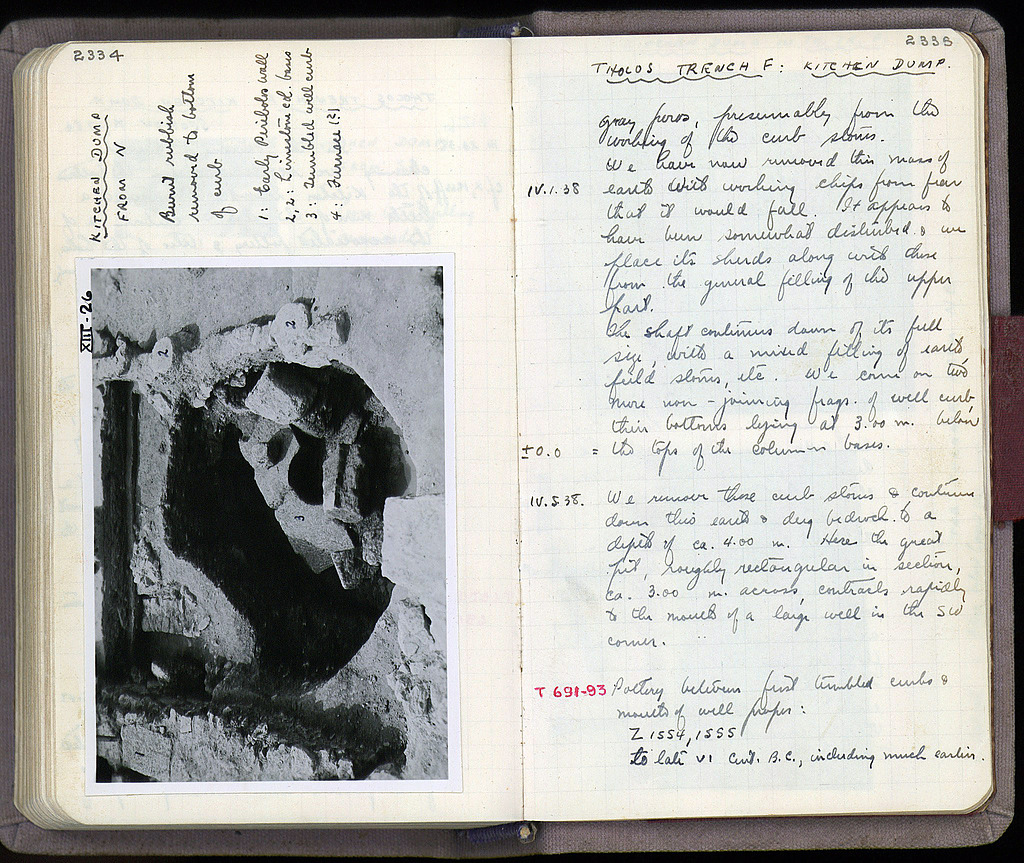 2334
KITCHEN DUMP
FROM N
Burnt rubbish
removed to bottom
of curb
1. Early Peribolos wall
2, 2: Limestone col. bases
3: tumbled well curb
4. Furnace (?)
XIII-26
2
2
3
1
2335
THOLOS TRENCH F: KITCHEN DUMP.
gray poros, presumably from the
working of the curb stones.
We have now removed this mass of
IV.1.38 earth with working chips from fear
that it would fall. It appears to
have been somewhat disturbed & we
place its sherds along with those
from the general filling of the upper
part.
The shaft continues down of its full
size, with a mixed filling of earth,
field stones, etc. We come on two
more non-joining frags. of well curb,
their bottoms lying at 3.00 m. below
±0.0 = the tops of the column bases.
IV.5.38. We remove these curb stones & continue
down thru earth & dug bedrock to a
depth of ca. 4.00 m. Here the great
pit, roughly rectangular in section,
ca. 3.00 m. across, contracts rapidly
to the mouth of a large well in the SW
corner.
T 691-93 Pottery between first tumbled curbs &
mouth of well proper:
Z 1554, 1555
to late VI cent. B.C., including much earlier.